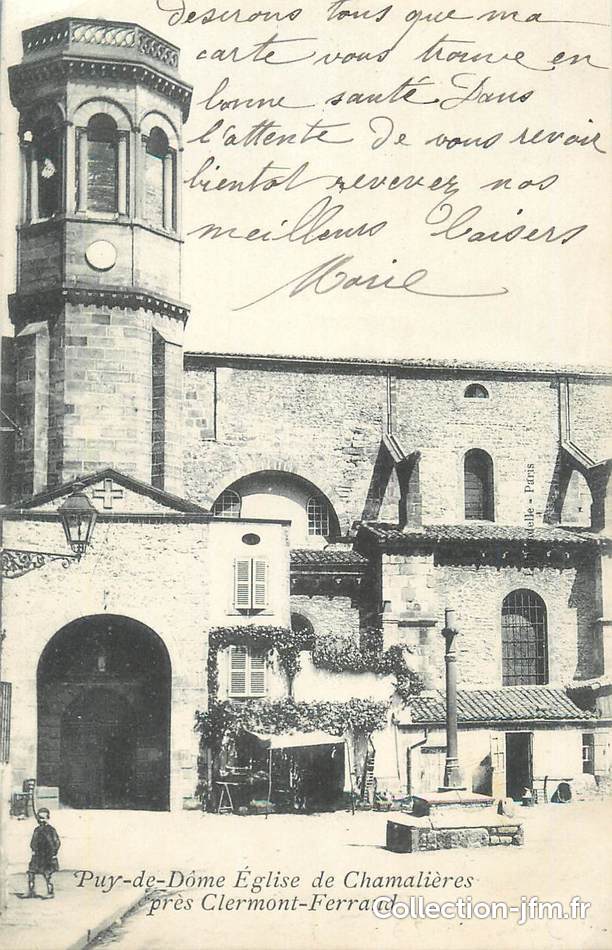 deserons tous que ma
carte vous trouve en
bonne santé Dans
l'attente de vous revoir
bientot recevez nos
meilleurs baisers
Marie
Paris
Puy-de-Dôme Église de Chamalières
près Clermont-Ferrand
Collection-jfm.fr